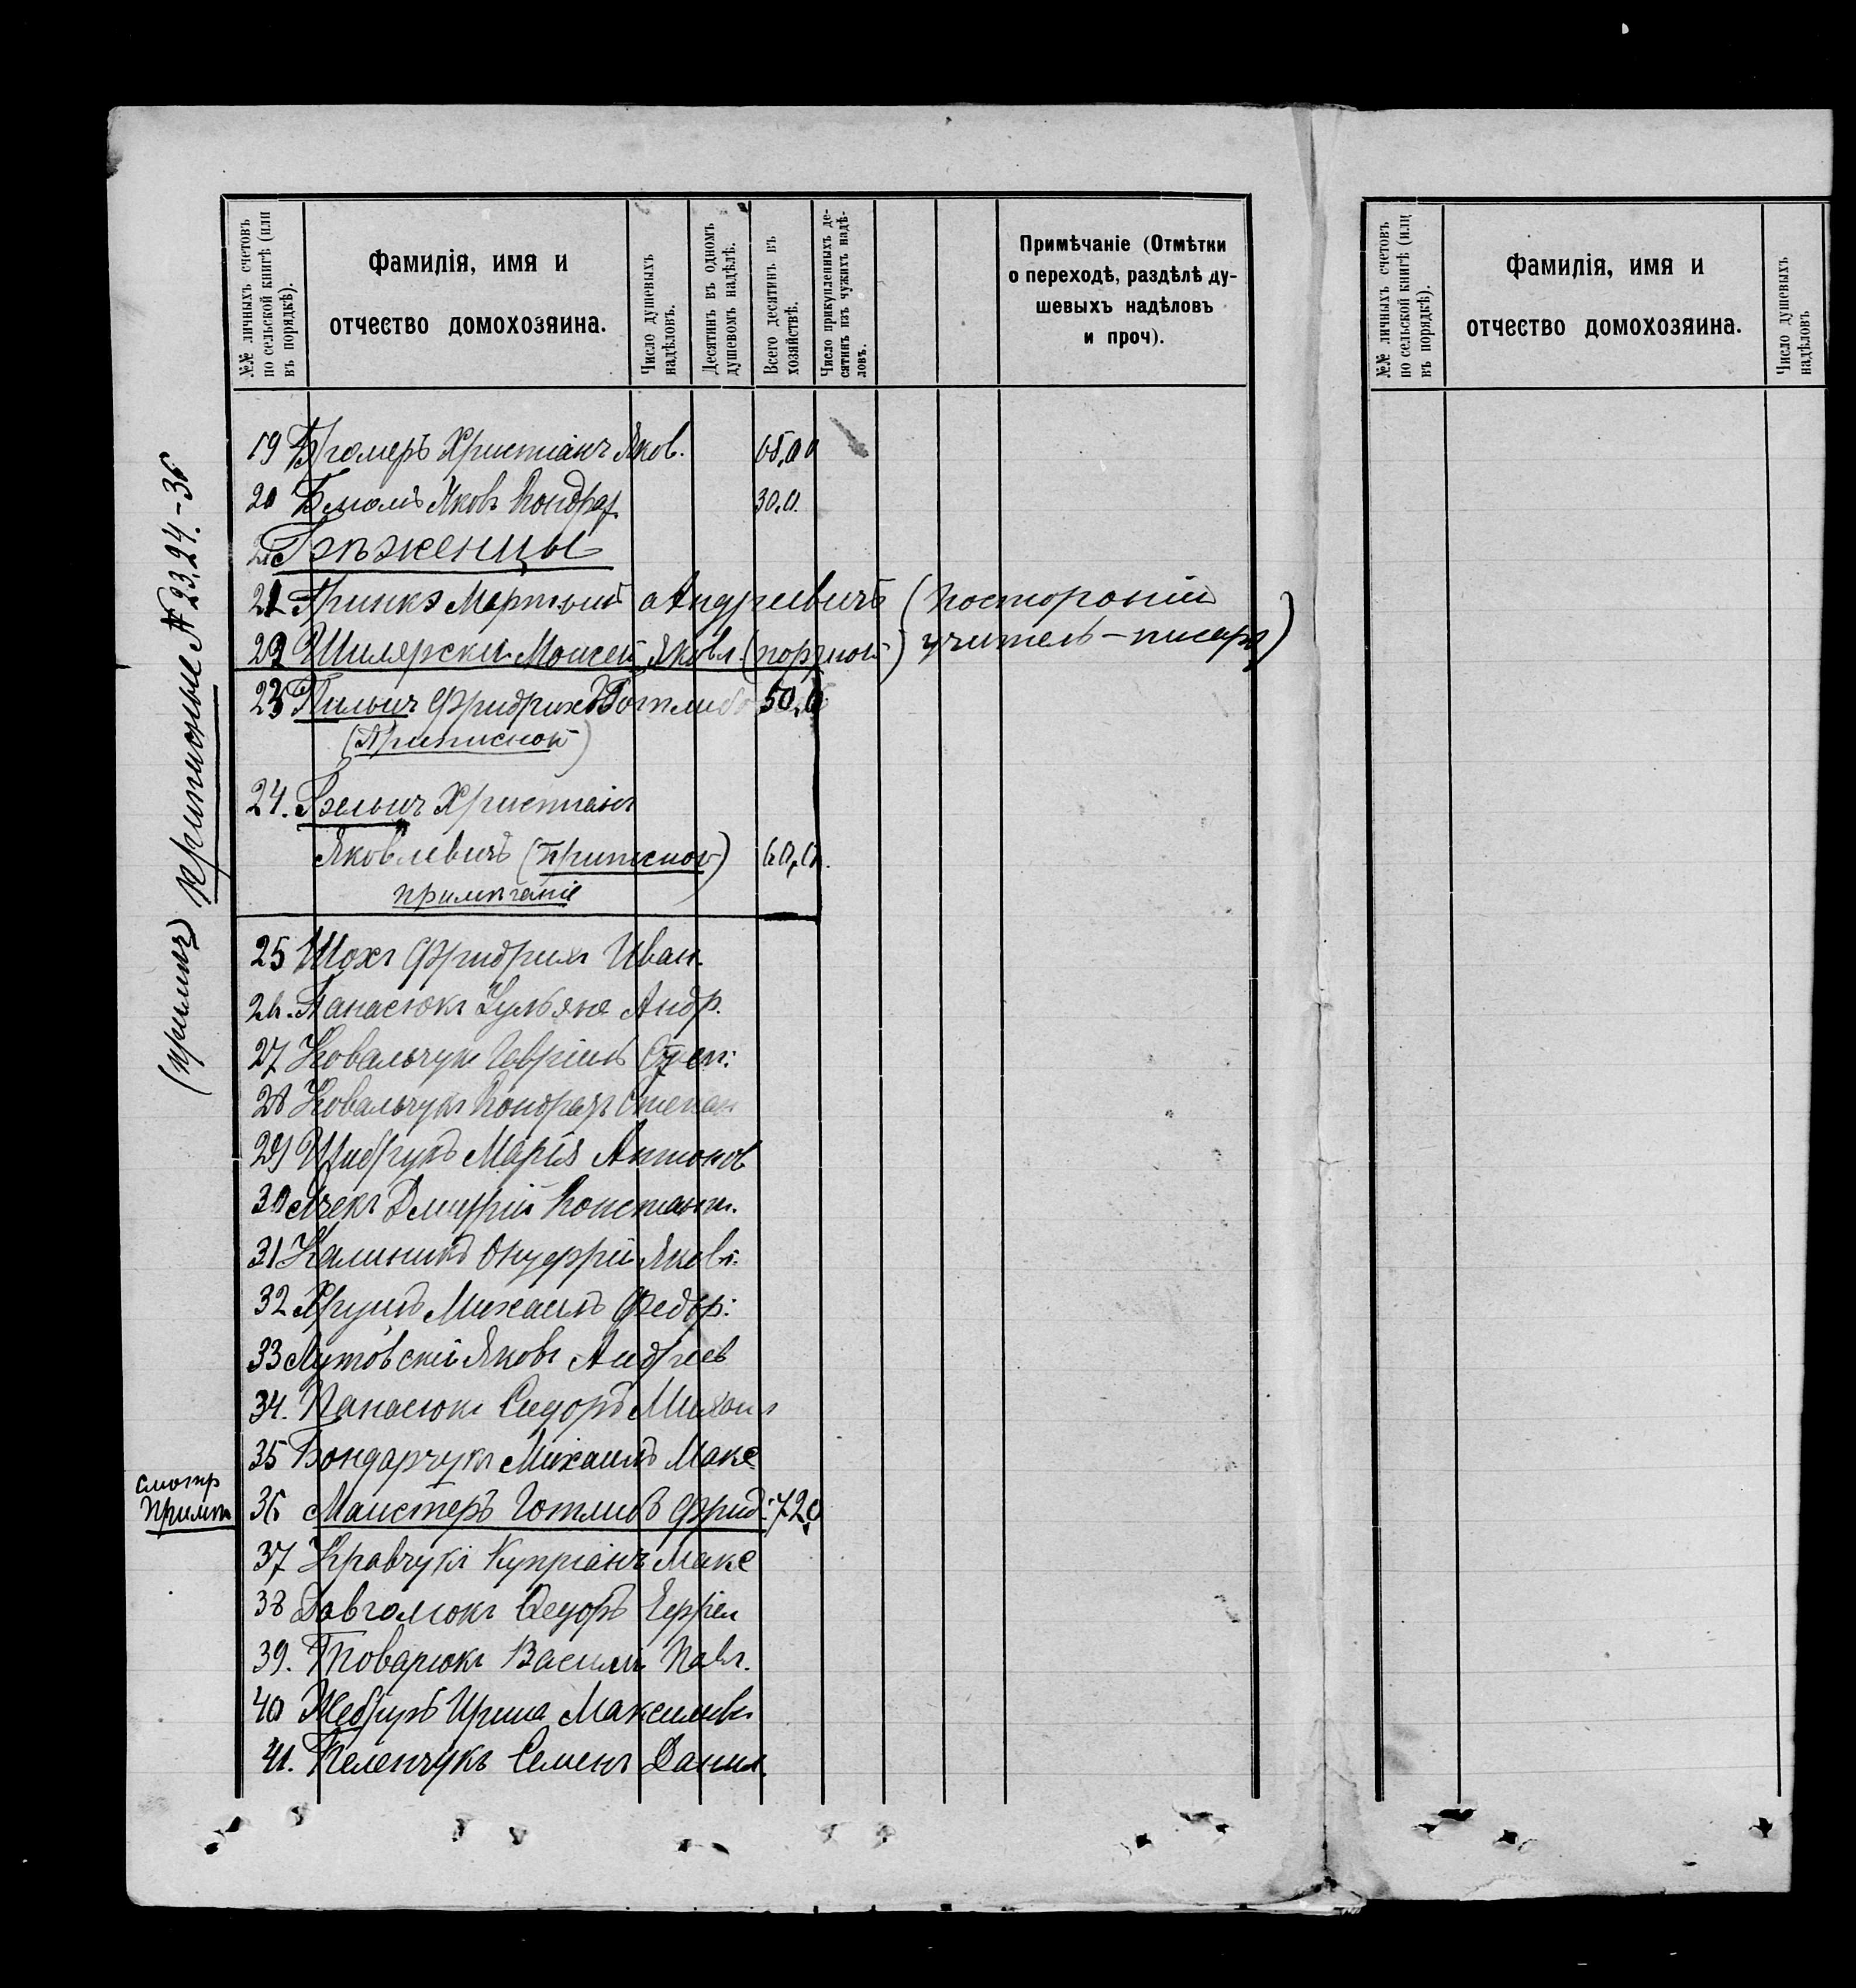 №№ личныхъ счетовъ по сельской книгѣ (или въ порядкѣ).
Фамилія, имя и отчество домохозяина.
Число душевыхъ надѣловъ.
Десятинъ въ одномъ душевомъ надѣлѣ.
Всего десятинъ въ хозяйствѣ.
Число прикупленныхъ десятинъ изъ чужихъ надѣловъ.
Примѣчаніе (Отмѣтки
о переходѣ, раздѣлѣ ду-
шевыхъ надѣловъ
и проч).
19 Христіанъ Яков. 65,00
20 Яковъ Кондрат. 30,0.
Бѣженцы
21 Мартынъ Андреевичъ (посторонній
учитель-писарь)
22 Шилярски Моисей Яковл. (портной)
23 Фридрихъ Готлибо 50,0
(Приписной)
24. Христіанъ
Яковлевичъ (приписной) 60,0.
примѣчаніе
(примич) приписные № 23,24.-36
25 Шохъ Фридрихъ Иван.
26. Панасюкъ Андр.
27 Ковальчукъ Гавріилъ Степ:
28 Ковальчукъ Кондратъ Степан
29 Марія Антонов
30 Дмитрій Констант.
31 Калиникъ Онуфрій Яковл.
32 Хрущъ Михаилъ Федор:
33 Лутовскій Яковъ Андреев
34. Панасюкъ Сидоръ Михаил
35 Бондарчукъ Михаилъ Макс
смотр
Примѣч
36 Маистеръ Готлибъ Фрид: 72,0
37 Кравчукъ Купріанъ Макс
38 Довгалюкъ
39. Товарюкъ Василій Павл.
40 Ирина Максимов
41. Пеленчукъ Семенъ Данил.
№№ личныхъ счетовъ по сельской книгѣ (или въ порядкѣ).
Фамилія, имя и отчество домохозяина.
Число душевыхъ надѣловъ